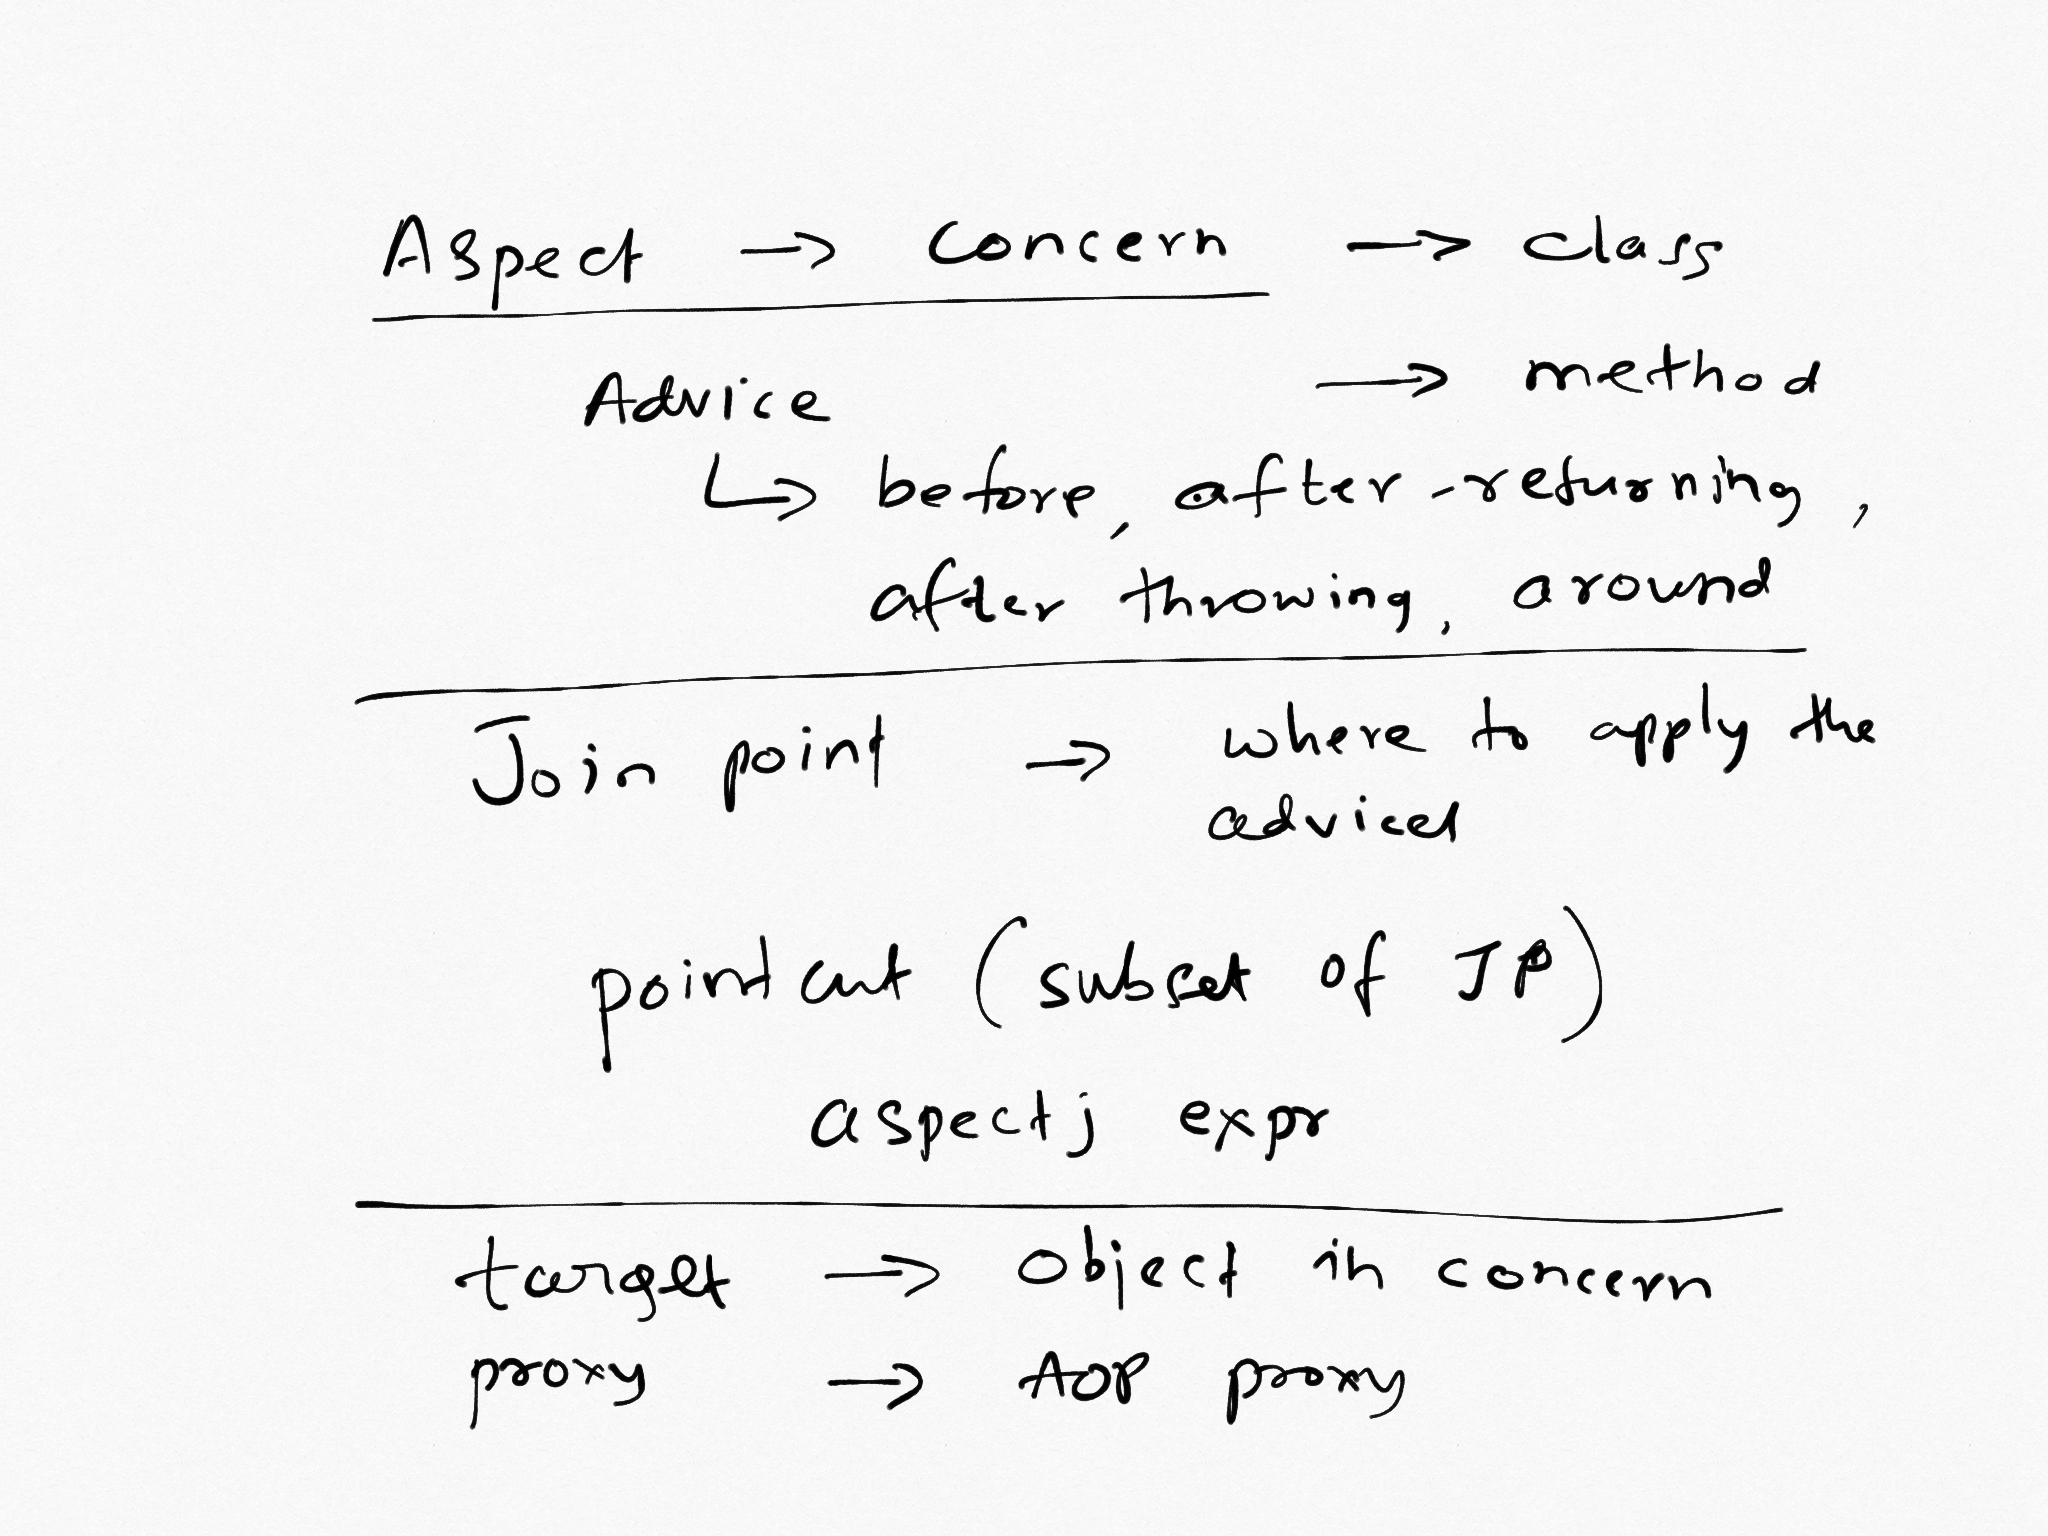 Aspect → Concern → class
Advice → method
↳ before, after-returning,
after throwing, around
Join point → where to apply the
advices
pointcut (subset of JP)
aspectj expr
target → Object in concern
proxy → AOP proxy